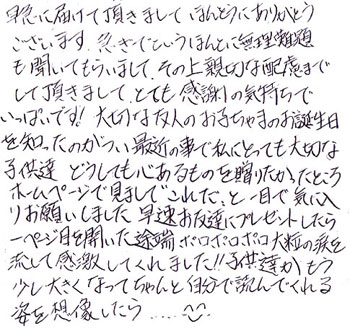 早急に届けて頂きまして ほんとうにありがとう
ございます。急ぎでというほんとに無理難題
も聞いてもらいまして、その上親切な配慮まで
して頂きまして、とても感謝の気持ちで
いっぱいです! 大切な友人のお子ちゃまのお誕生日
を知ったのがつい最近の事で私にとっても大切な
子供達 どうしても心あるものを贈りたかったところ
ホームページで見まして"これだ"、と一目で気に入
りお願いしました 早速お友達にプレゼントしたら
一ページ目を開いた途端 ポロポロポロ大粒の涙を
流して感激してくれました!! 子供達がもう
少し大きくなってちゃんと自分で読んでくれる
姿を想像したら.....